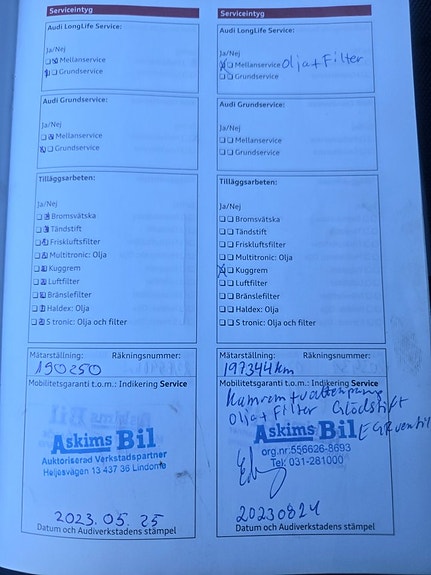 Serviceintyg
Audi LongLife Service:
Ja/Nej
Mellanservice
Grundservice
Audi Grundservice:
Ja/Nej
Mellanservice
Grundservice
Tilläggsarbeten:
Ja/Nej
Bromsvätska
Tändstift
Friskluftsfilter
Multitronic: Olja
Kuggrem
Luftfilter
Bränslefilter
Haldex: Olja
S tronic: Olja och filter
Mätarställning: Räkningsnummer:
190250
Mobilitetsgaranti t.o.m.: Indikering Service
Askims Bil
Auktoriserad Verkstadspartner
Heljesvägen 13 437 36 Lindome
2023.05.25
Datum och Audiverkstadens stämpel
Serviceintyg
Audi LongLife Service:
Ja/Nej
Mellanservice Olja + Filter
Grundservice
Audi Grundservice:
Ja/Nej
Mellanservice
Grundservice
Tilläggsarbeten:
Ja/Nej
Bromsvätska
Tändstift
Friskluftsfilter
Multitronic: Olja
Kuggrem
Luftfilter
Bränslefilter
Haldex: Olja
S tronic: Olja och filter
Mätarställning: Räkningsnummer:
197344km
Mobilitetsgaranti t.o.m.: Indikering Service
Kamrem + vattenpump
Olja + Filter Glödstift
EGR ventil
Askims Bil
org.nr.556626-8693
Tel: 031-281000
20230824
Datum och Audiverkstadens stämpel